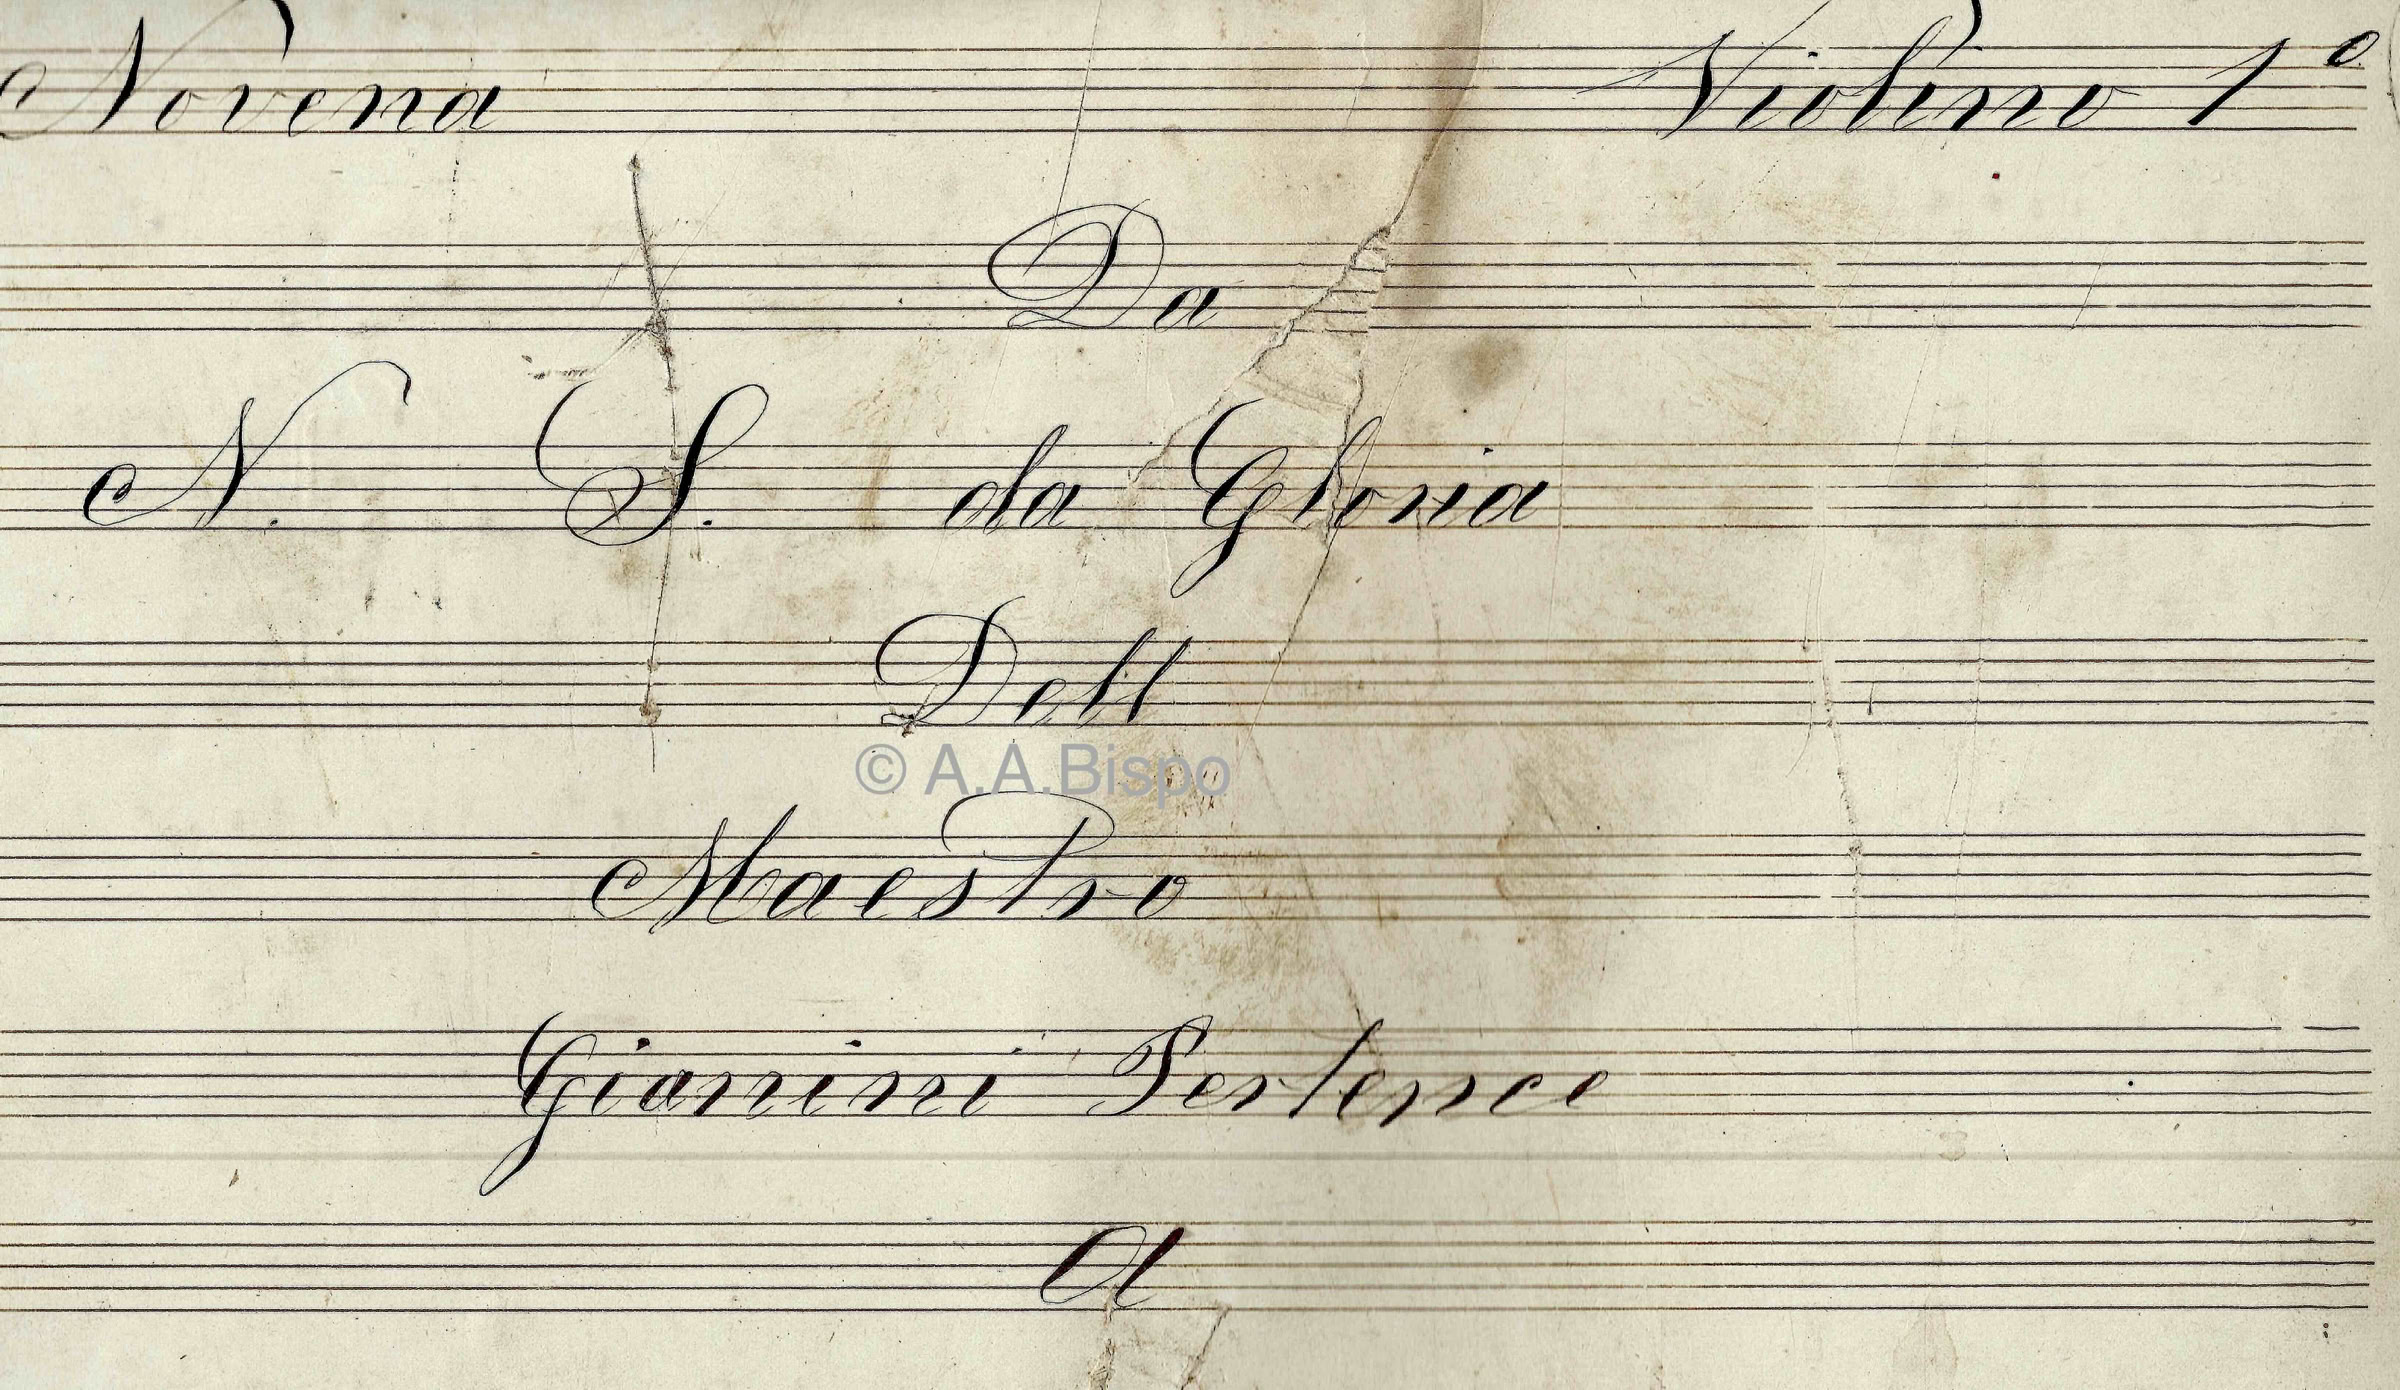 Novena Violino 1º
Da
N. S. da Gloria
Dell
© A.A.Bispo
Maestro
Gianini Pertence
a